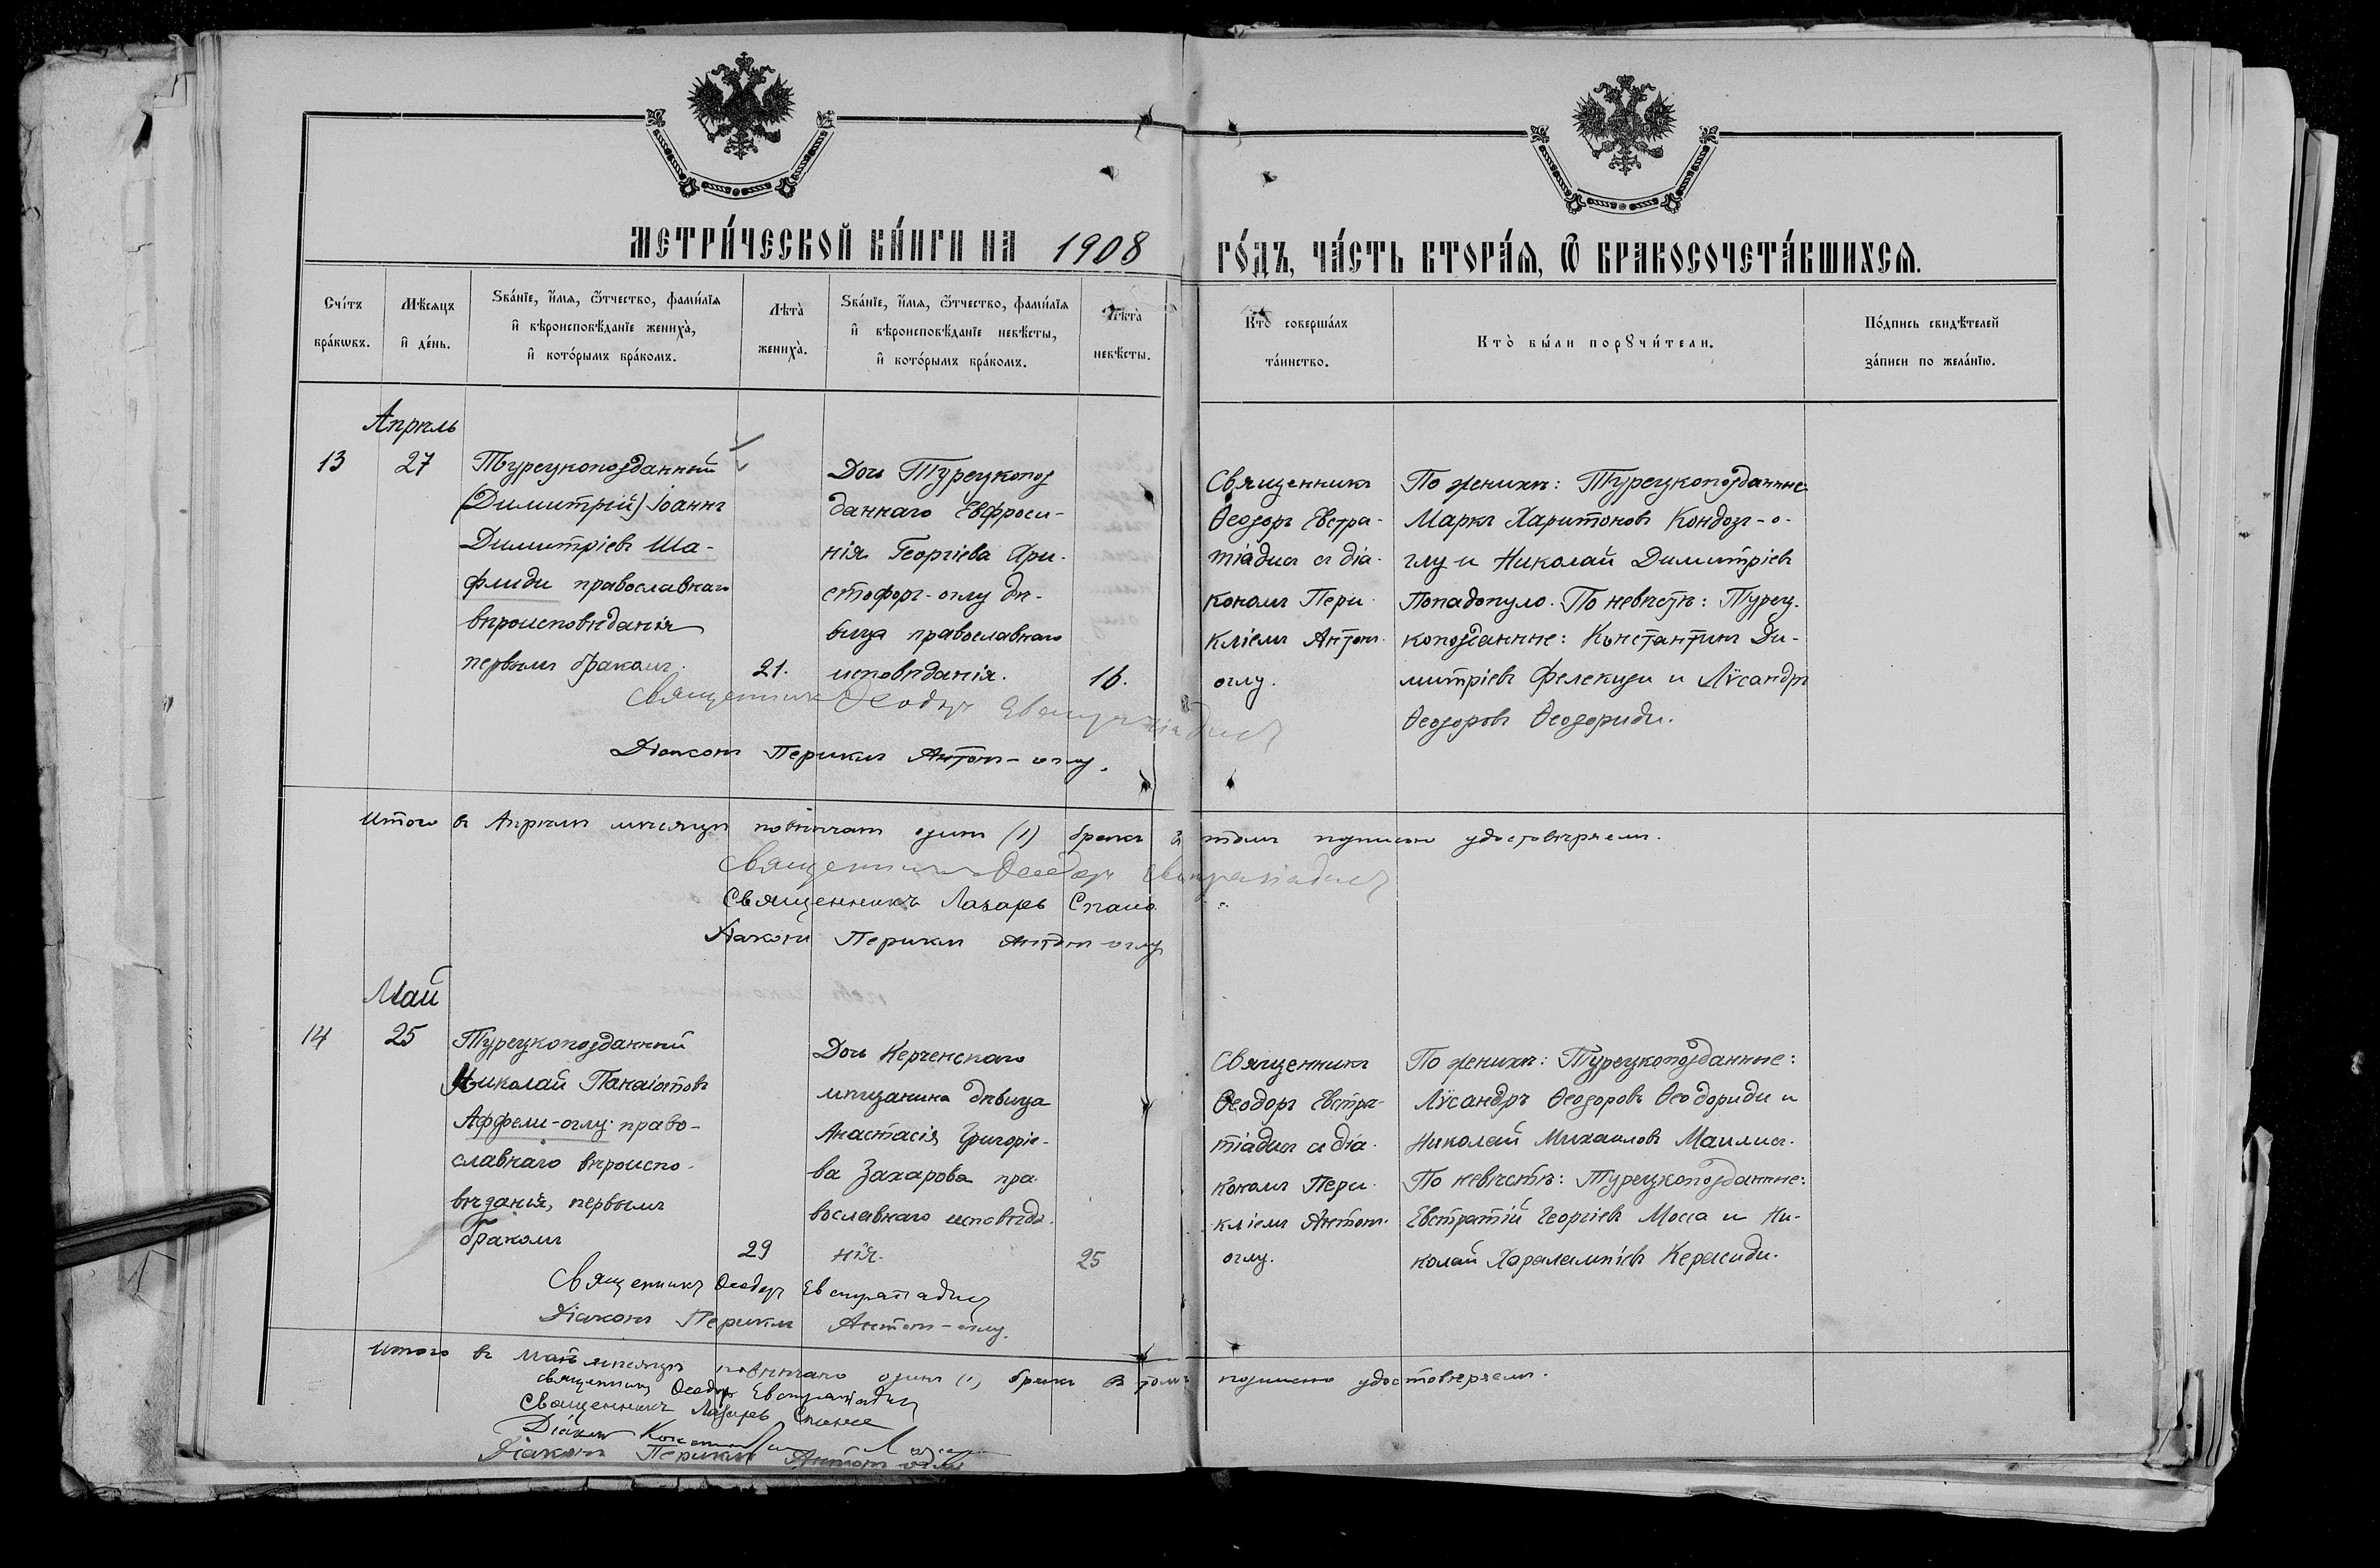 МЕТРИ́ЧЕСКОЙ КНИ́ГИ НА 1908 ГО́ДЪ, ЧА́СТЬ ВТОРА́Я, Ѡ БРАКОСОЧЕТА́ВШИХСЯ.
Сче́тъ бра́кѡвъ.
Мѣ́сяцъ и҆ де́нь.
Ѕва́нїе, и҆́мя, ѻ҆́тчество, фами́лїя
и҆ вѣроисповѣ́данїе жениха̀,
и҆ кото́рымъ бра́комъ.
Лѣта̀ жениха̀.
Ѕва́нїе, и҆́мя, ѻ҆́тчество, фами́лїя
и҆ вѣроисповѣ́данїе невѣ́сты,
и҆ кото́рымъ бра́комъ.
Лѣта̀ невѣ́сты.
Кто̀ соверша́лъ та́инство.
Кто̀ бы́ли порꙋчи́тели.
По́дпись свидѣ́телей
за́писи по жела́нїю.
Апрѣль
13
27
Турецкоподданный
(Димитрій) Іоаннъ
Димитріевъ Ша-
флиди православнаго
вѣроисповѣданія
первымъ бракомъ.
21.
Дочь Турецкопод
даннаго Евфроси-
нія Георгіева Хри-
стофоръ-оглу дѣ-
вица православнаго
исповѣданія.
16.
Священникъ
Ѳеодоръ Евстра-
тіадисъ съ діа-
кономъ Пери-
кліемъ Антон-
оглу.
По женихѣ: Турецкоподданные
Маркъ Харитоновъ Кондозъ-о-
глу и Николай Димитріевъ
Попадопуло. По невѣстѣ: Турец-
коподданные: Константинъ Ди-
митріевъ Фелекиди и Лѵсандръ
Ѳеодоровъ Ѳеодориди.
Священникъ Ѳеодоръ Евстратіадисъ
Діаконъ Периклъ Антон-оглу.
Итого въ Апрѣлѣ мѣсяцѣ повѣнчанъ одинъ (1) бракъ въ томъ подписью удостовѣряемъ.
Священникъ Ѳеодоръ Евстратіадисъ
Священникъ Лазарь
Діаконъ Периклъ Антон-оглу
Май
14
25
Турецкоподданный
Николай Панаіотовъ
Аффели-оглу право-
славнаго вѣроиспо-
вѣданія, первымъ
бракомъ
29
Дочь Керченскаго
мѣщанина дѣвица
Анастасія Григоріе-
ва Захарова пра-
вославнаго исповѣда-
нія.
25
Священникъ
Ѳеодоръ Евстра-
тіадисъ съ діа-
кономъ Пери-
кліемъ Антон-
оглу.
По женихѣ: Турецкоподданные:
Лѵсандръ Ѳеодоровъ Ѳеодориди и
Николай Михаиловъ Маилисъ.
По невѣстѣ: Турецкоподданные:
Евстратій Георгіевъ Мосса и Ни-
колай Харалампіевъ Керасиди.
Священникъ Ѳеодоръ Евстратіадисъ
Діаконъ Периклъ Антон-оглу.
Итого въ Маѣ мѣсяцѣ повѣнчано одинъ (1) бракъ въ томъ подписью удостовѣряемъ.
Священникъ Ѳеодоръ Евстратіадисъ
Священникъ Лазарь
Діаконъ
Діаконъ Периклъ Антон-оглу